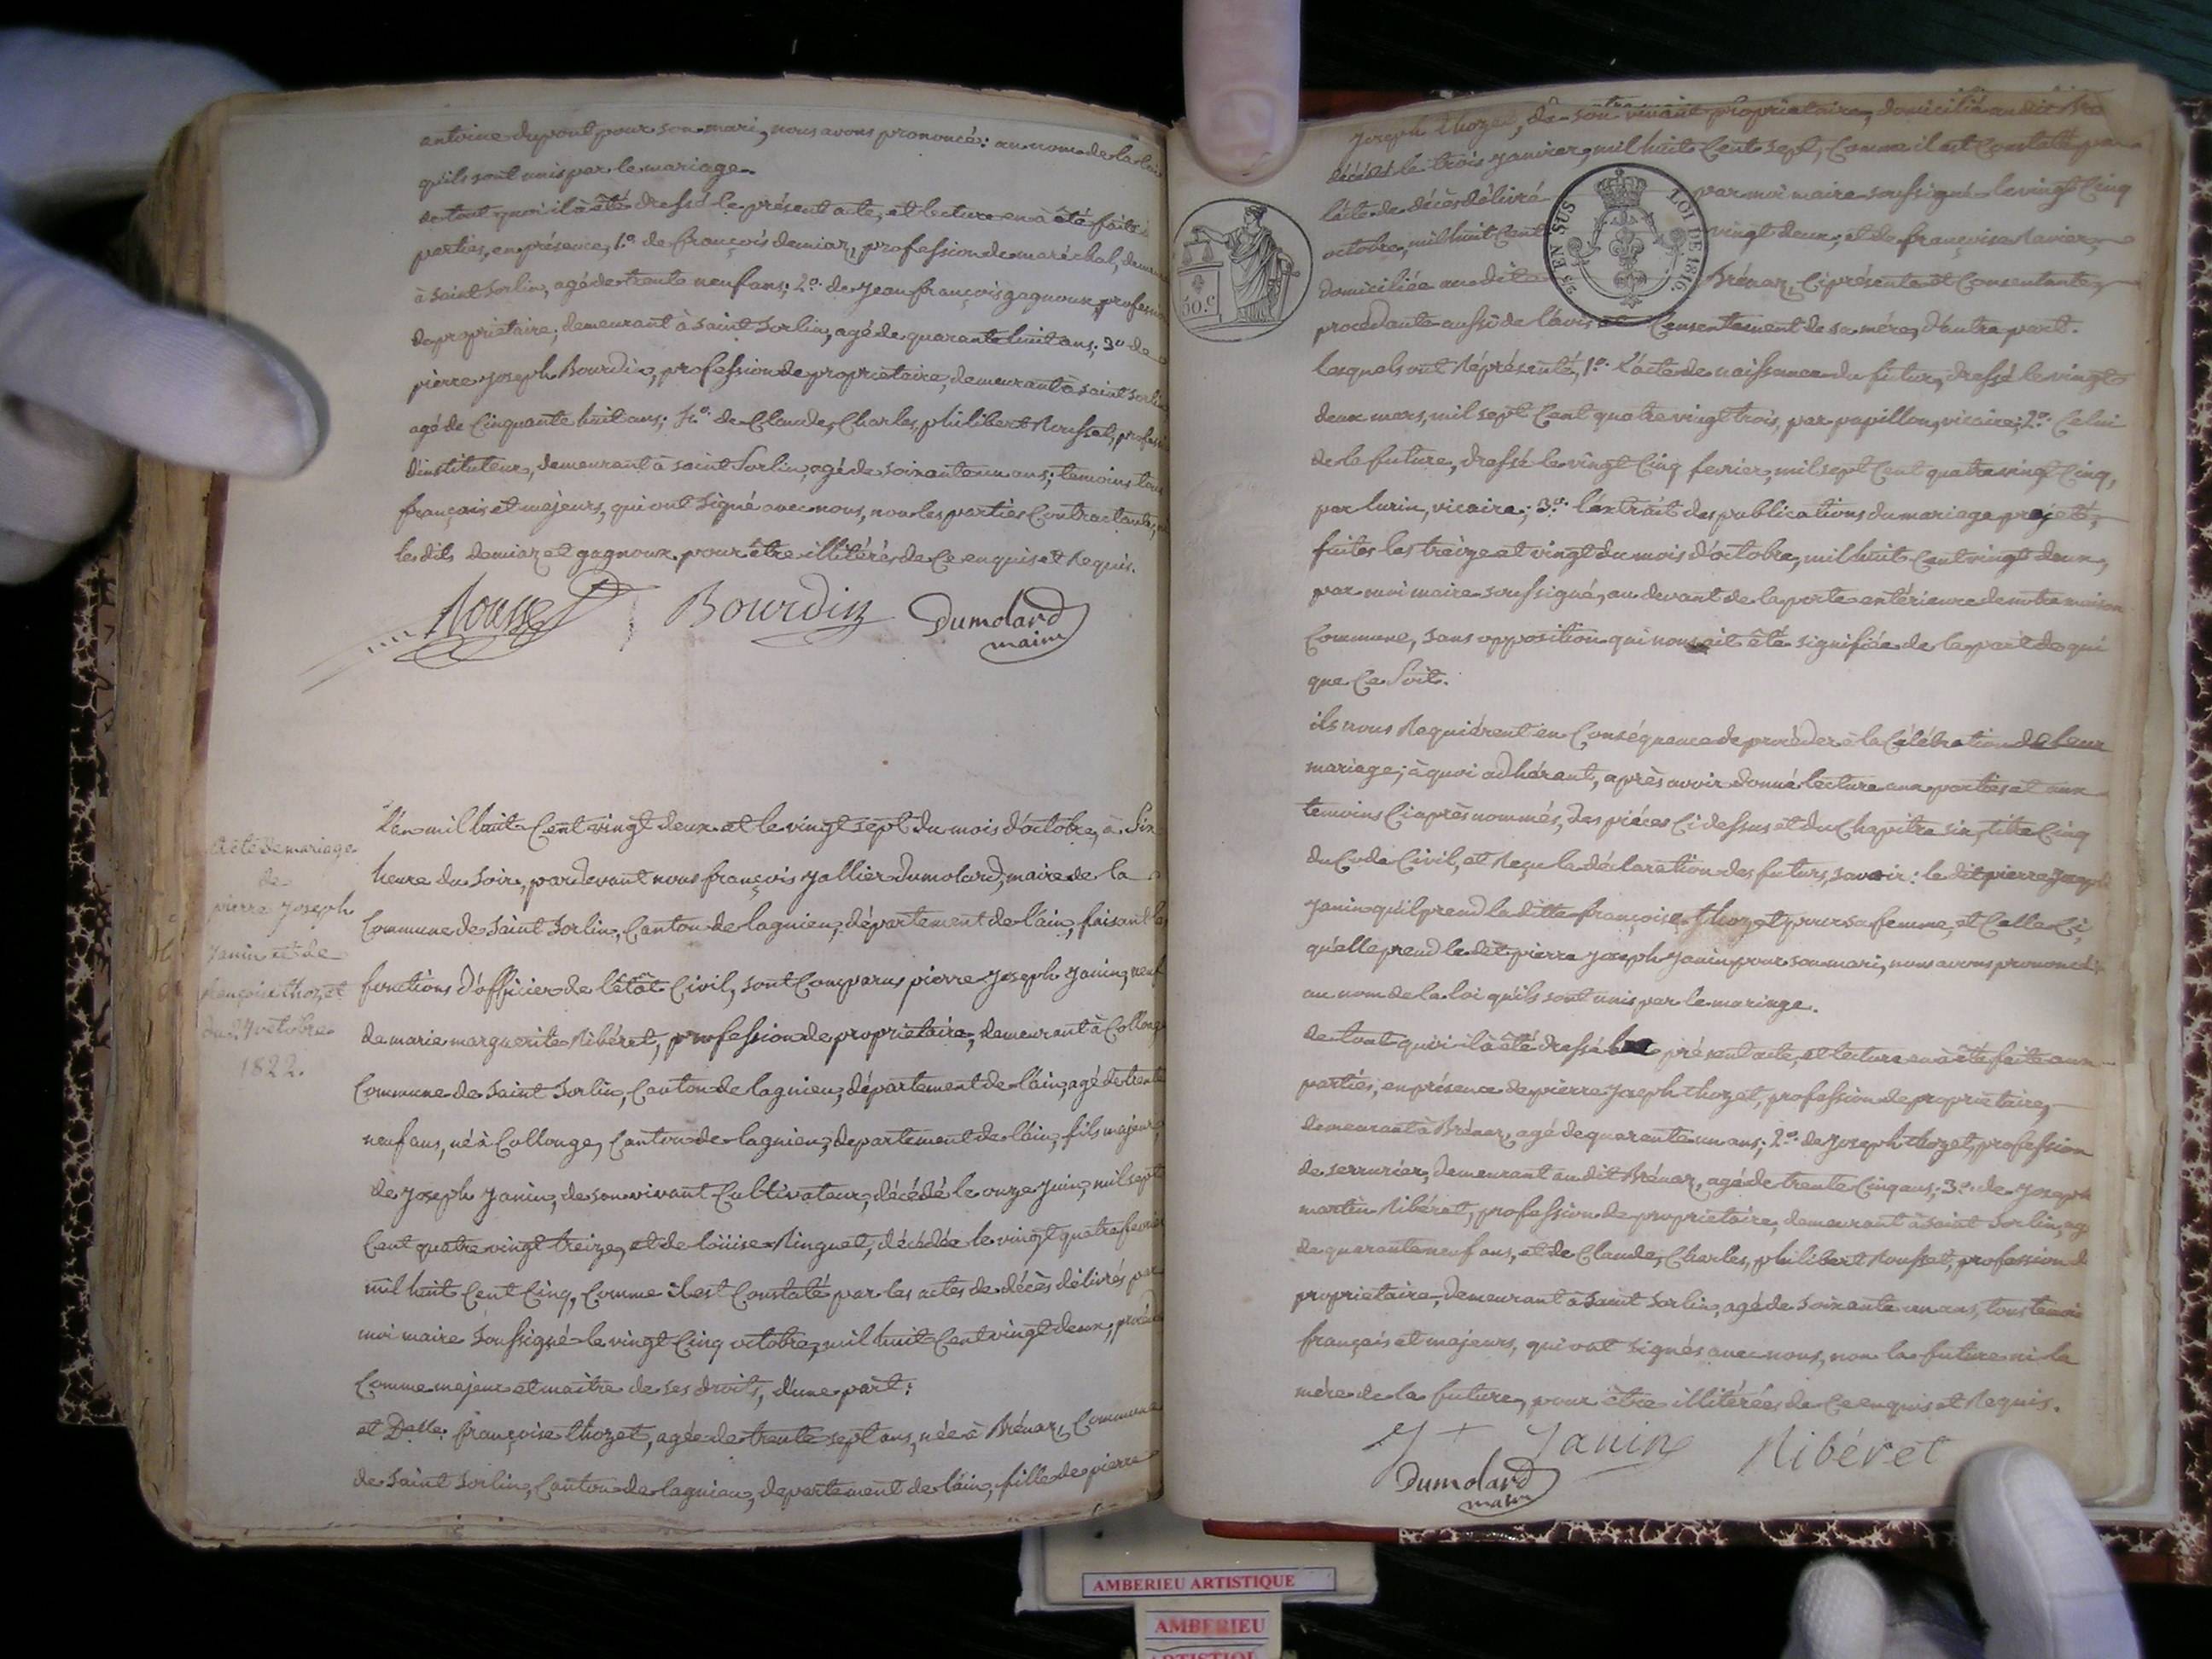 antoine dupont pour son mari, nous avons prononcé: au nom de la loi
qu'ils sont unis par le mariage.
de tout quoi il à été dressé le présent acte, et lecture en à été faite
parties, en présence, 1.º de françois demiaz, profession de maréchal,
à saint Sorlin, agé de trente neuf ans; 2.º de jean françois gagnoux, profession
de propriétaire, demeurant à saint Sorlin, agé de quarante huit ans; 3.º de
pierre joseph Bourdin, profession de propriétaire, demeurant à saint Sorlin
agé de Cinquante huit ans; 4.º de Claude, Charles, philibert Rousset, profession
d'instituteur, demeurant à saint Sorlin, agé de soixante un ans; temoins tous
français et majeurs, qui ont signé avec nous, non les parties Contractantes,
les dits demiaz et gagnoux pour être illitérés de Ce enquis et Requis.
Rousset Bourdin Dumolard
maire
Acte de mariage
de
pierre joseph
janin et de
françoise thozet
du 27 octobre
1822.
L'an mil huit Cent vingt deux et le vingt sept du mois d'octobre, à Six
heure du Soir, pardevant nous françois jallier Dumolard, maire de la
Commune de Saint Sorlin, Canton de lagnieu, département de l'ain, faisant les
fonctions d'officier de l'état Civil, sont Comparus pierre joseph janin, veuf
de marie marguerite Ribéret, profession de propriétaire, demeurant à Collonge
Commune de Saint Sorlin, Canton de lagnieu, département de l'ain, agé de trente
neuf ans, né à Collonge, Canton de lagnieu, département de l'ain, fils majeur
de joseph janin, de son vivant Cultivateur, décédé le onze juin, mil sept
Cent quatre vingt treize, et de loüise Ringuet, décédée le vingt quatre fevrier
mil huit Cent Cinq, Comme il est Constaté par les actes de décès délivrés par
moi maire Soussigné le vingt Cinq octobre, mil huit Cent vingt deux,
Comme majeur et maitre de ses droits, d'une part;
et Delle. françoise thozet, agée de trente sept ans, née à Brénaz, Commune
de Saint Sorlin, Canton de lagnieu, departement de l'ain, fille de pierre
joseph thozet, de son vivant propriétaire, domicilié au dit Bré
décédé le trois janvier, mil huit Cent sept, Comme il est Constaté par
l'acte de décès délivré par moi maire soussigné le vingt Cinq
octobre, mil huit Cent vingt deux; et de françoise Ravier,
domiciliée au dit Brénaz, Ci présente et Consentante,
procédante aussi de l'avis et Consentement de sa mére, d'autre part.
50.c
5/5 EN SUS LOI DE 1816.
lesquels ont Réprésenté, 1.º l'acte de naissance du futur, dressé le vingt
deux mars, mil sept Cent quatre vingt trois, par papillon, vicaire; 2.º Celui
de la future, dressé le vingt Cinq fevrier, mil sept Cent quatre vingt Cinq,
par lurin, vicaire; 3.º l'extrait des publications du mariage projeté,
faites les treize et vingt du mois d'octobre, mil huit Cent vingt deux,
par moi maire soussigné, au devant de la porte extérieure de notre maison
Commune, sans opposition qui nous ait été signifiée de la part de qui
que Ce Soit.
ils nous Requiérent en Conséquence de procéder à la Célébration de leur
mariage; à quoi adhérant, après avoir donné lecture aux parties et aux
temoins Ci après nommés, des piéces Ci dessus et du Chapitre six, titre Cinq
du Code Civil, et Reçu la déclaration des futurs, savoir: le dit pierre joseph
janin qu'il prend la ditte françoise thozet pour sa femme, et Celle Ci,
qu'elle prend le dit pierre joseph janin pour son mari, nous avons prononcé:
au nom de la loi qu'ils sont unis par le mariage.
de tout quoi il à été dressé le présent acte, et lecture en à été faite aux
parties, en présence de pierre joseph thozet, profession de propriétaire,
demeurant à Brénaz, agé de quarante un ans; 2.º de joseph thozet, profession
de serrurier, demeurant au dit Brénaz, agé de trente Cinq ans; 3.º de joseph
martin Ribéret, profession de propriétaire, demeurant à saint Sorlin, ag
de quarante neuf ans, et de Claude, Charles, philibert Rousset, profession d
propriétaire, demeurant à Saint Sorlin, agé de Soixante un ans, tous temoins
français et majeurs, qui ont signés avec nous, non la future ni la
mére de la future, pour être illitérées de Ce enquis et Requis.
Janin Ribéret
Dumolard
maire
AMBERIEU ARTISTIQUE
AMBERIEU
ARTISTIQUE